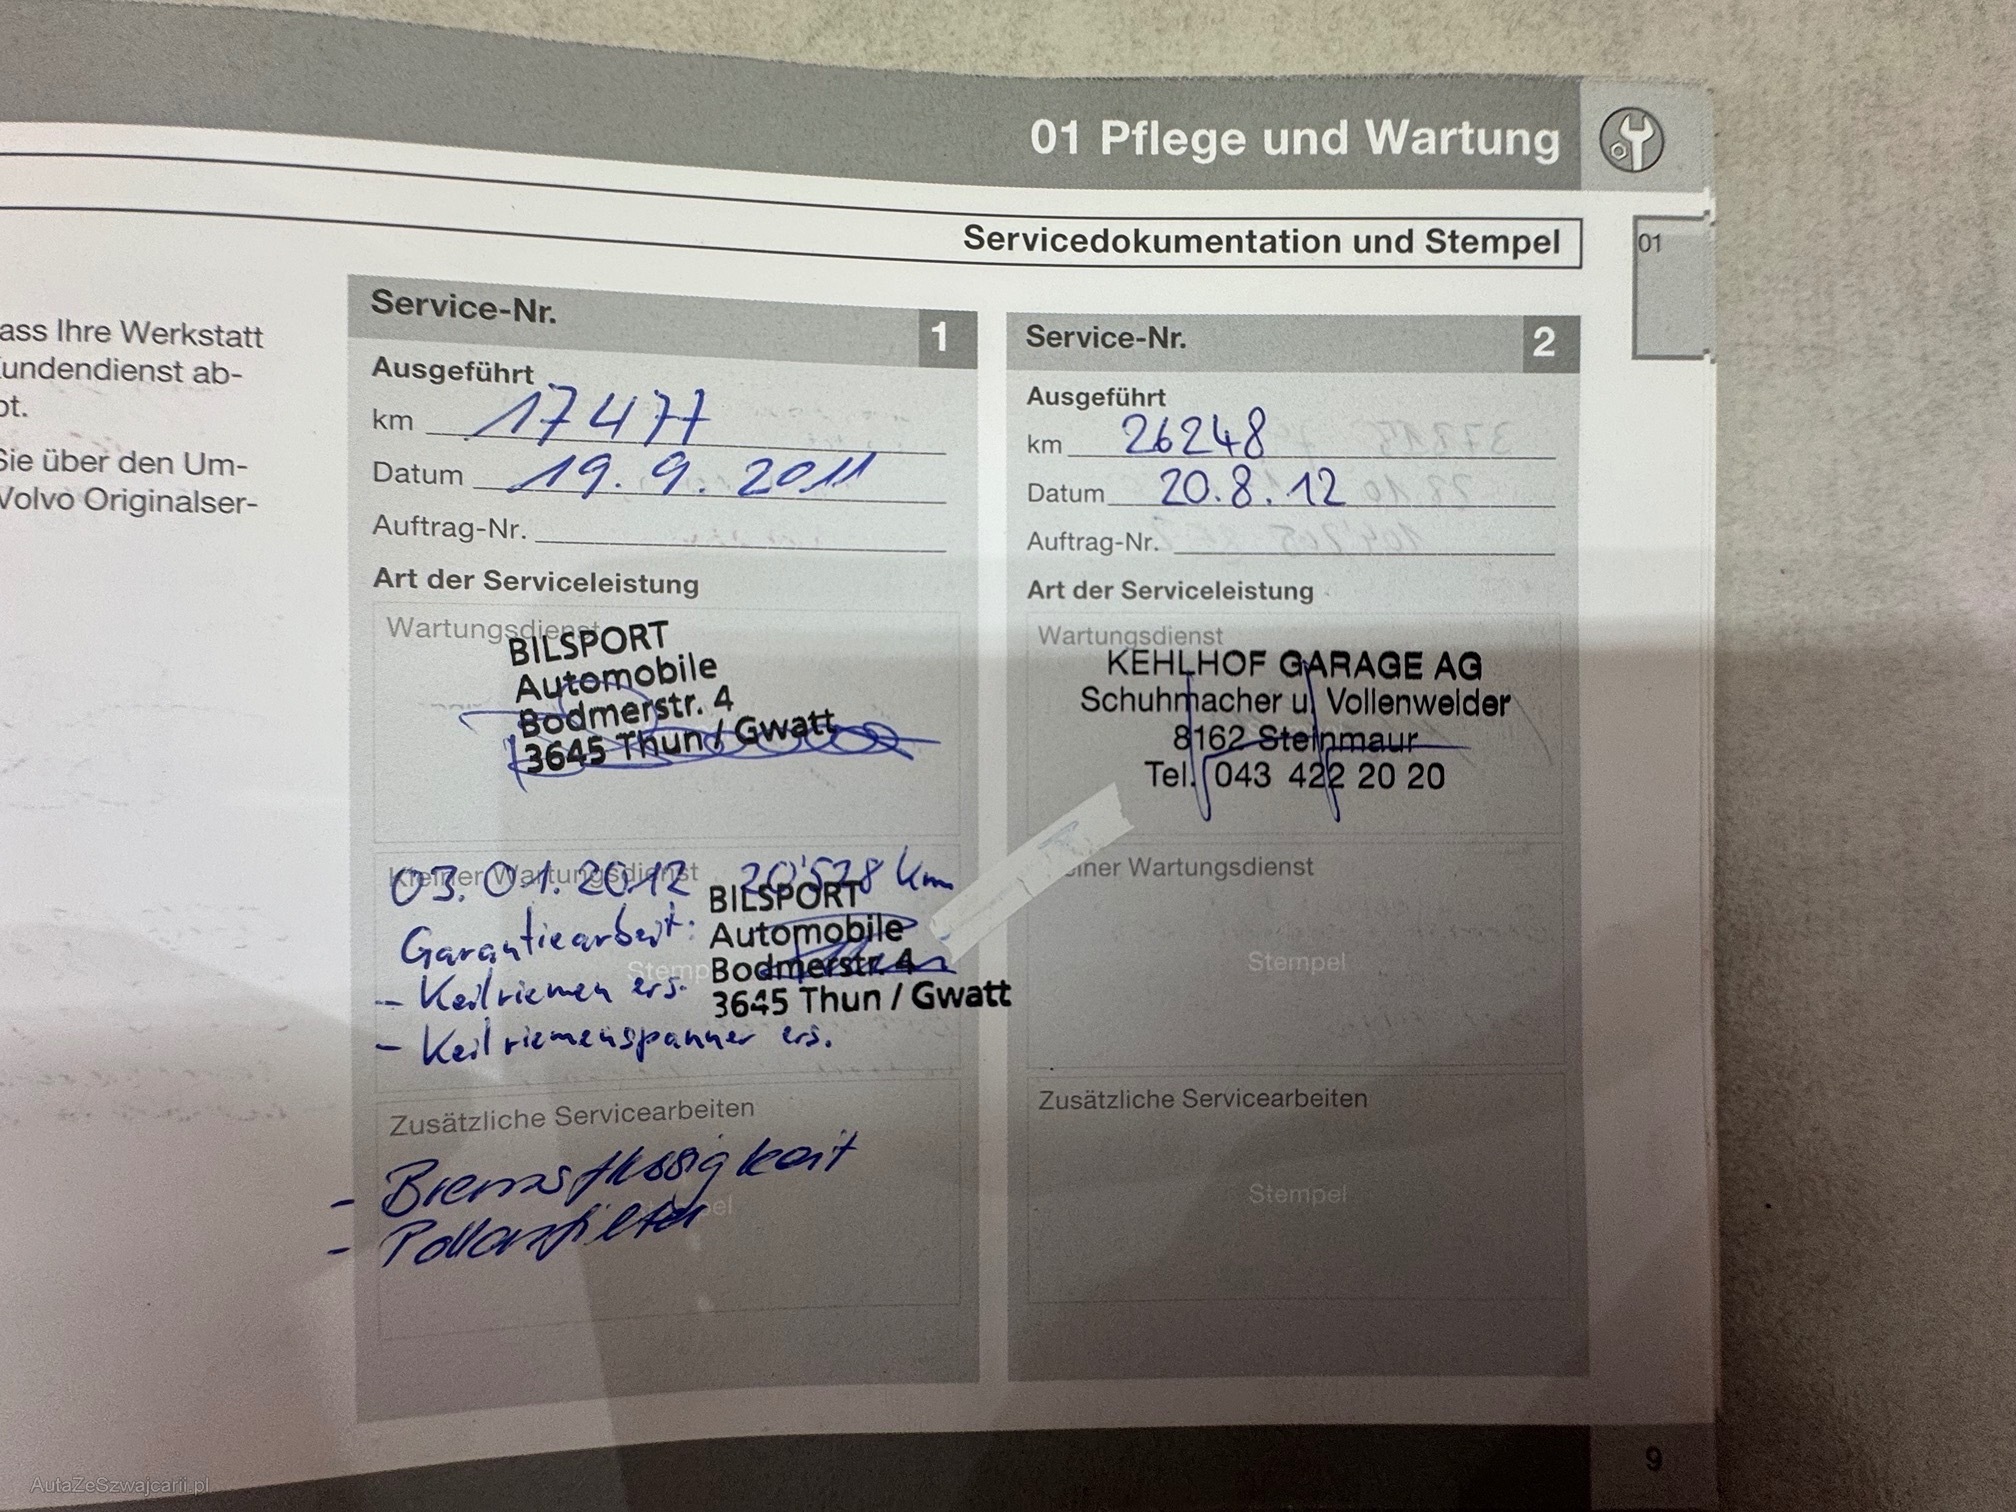 01 Pflege und Wartung
Servicedokumentation und Stempel
01
ass Ihre Werkstatt
undendienst ab-
ot.
Sie über den Um-
Volvo Originalser-
Service-Nr. 1
Ausgeführt
km 17477
Datum 19.9.2011
Auftrag-Nr.
Art der Serviceleistung
Wartungsdienst
BILSPORT
Automobile
Bodmerstr. 4
3645 Thun / Gwatt
Kleiner Wartungsdienst
03.01.2012 20'528 km
Garantiearbeit:
- Keilriemen ers.
- Keilriemenspanner ers.
Stempel
BILSPORT
Automobile
Bodmerstr. 4
3645 Thun / Gwatt
Zusätzliche Servicearbeiten
- Bremsflüssigkeit
- Pollenfilter
Service-Nr. 2
Ausgeführt
km 26248
Datum 20.8.12
Auftrag-Nr.
Art der Serviceleistung
Wartungsdienst
KEHLHOF GARAGE AG
Schuhmacher u. Vollenweider
8162 Steinmaur
Tel. 043 422 20 20
einer Wartungsdienst
Stempel
Zusätzliche Servicearbeiten
Stempel
9
AutaZeSzwajcarii.pl